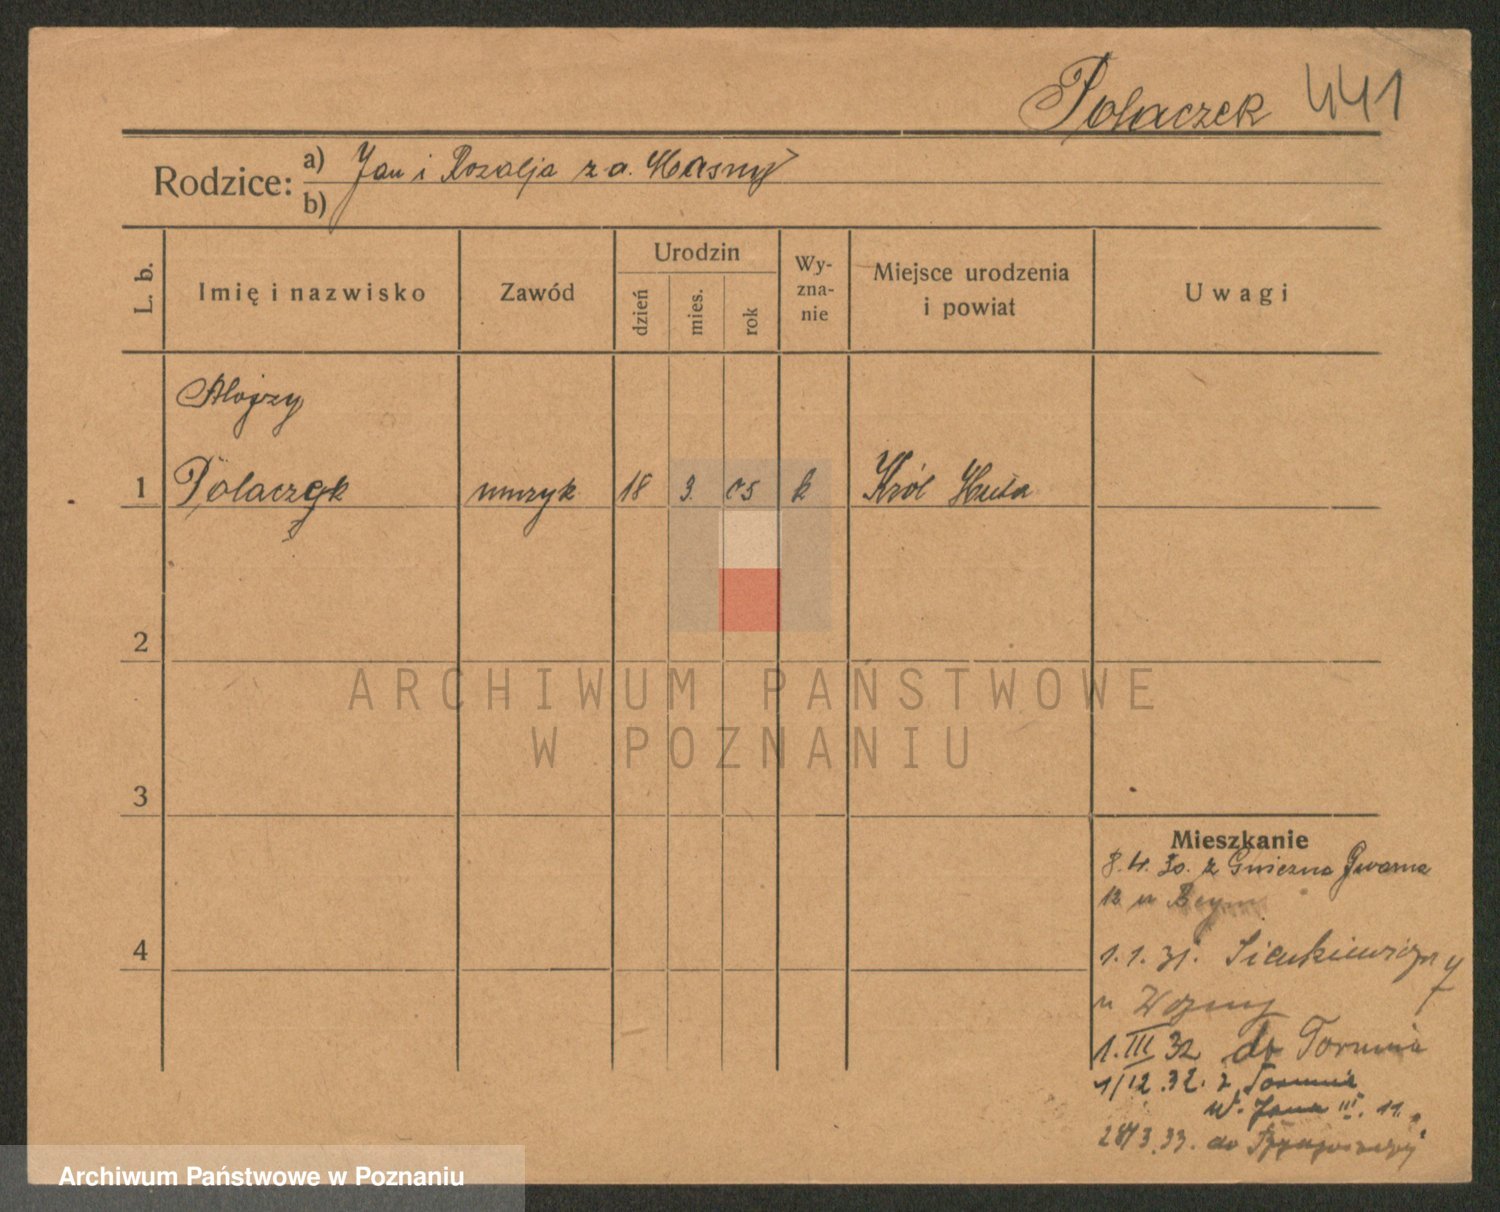 Polaczek 441
Rodzice: a) Jan i Rozalja z d. Masny
b)
L. b.
Imię i nazwisko
Zawód
Urodzin
dzień
mies.
rok
Wy-
zna-
nie
Miejsce urodzenia
i powiat
Uwagi
Alojzy
1 Polaczek muzyk 18 3. 05 k Król Huta
2
ARCHIWUM PAŃSTWOWE
W POZNANIU
3
4
Mieszkanie
8.4.30. z Gniezna
12 u
1.1.31. Sienkiewicza
u
1.III 32 do Torunia
1/12.32. z Torunia
Jana III. 11.
28/3.33. do
Archiwum Państwowe w Poznaniu